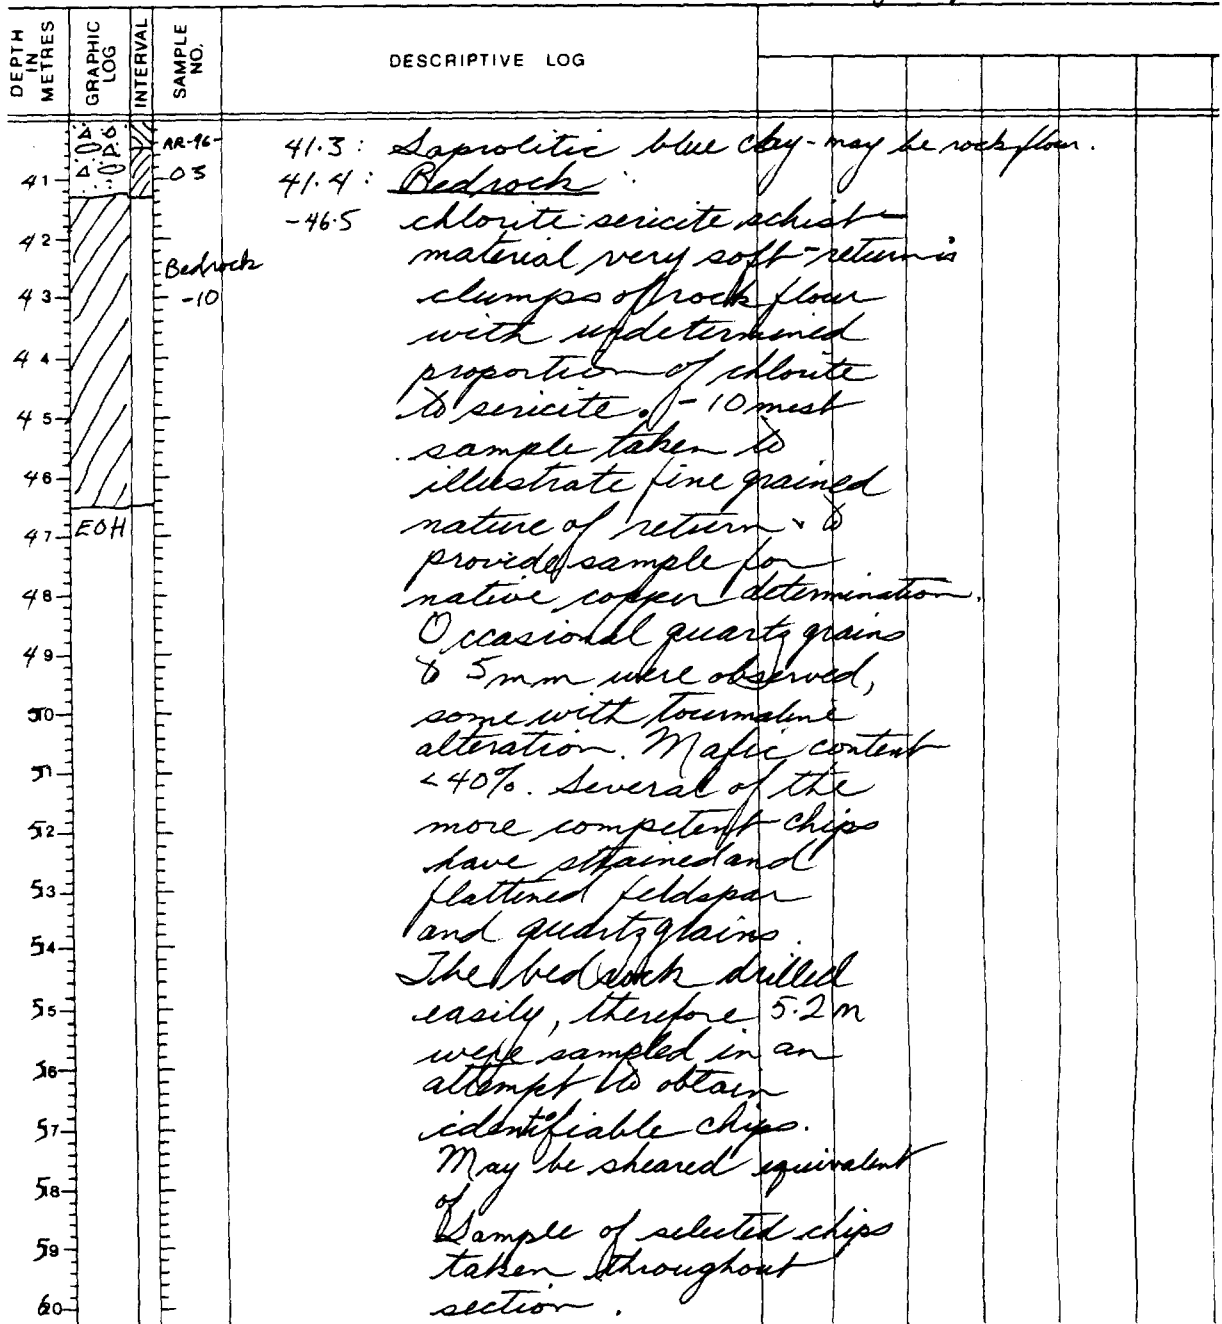 DEPTH IN METRES
GRAPHIC LOG
INTERVAL
SAMPLE NO.
DESCRIPTIVE LOG
AR-96-
03
41.3: Saprolitic blue clay - may be rock flour.
41.4: Bedrock
-46.5 chlorite-sericite schist
material very soft - return is
clumps of rock flour
with undetermined
proportion of chlorite
to sericite. -10 mest
sample taken to
illustrate fine grained
nature of return & to
provide sample for
native copper determination.
Occasional quartz grains
to 5mm were observed,
some with tourmaline
alteration. Mafic content
<40%. Several of the
more competent chips
have strained and
flattened feldspar
and quartz grains.
The bedrock drilled
easily, therefore 5.2m
were sampled in an
attempt to obtain
identifiable chips.
May be sheared equivalent
of
Sample of selected chips
taken throughout
section.
Bedrock
-10
EOH
41
42
43
44
45
46
47
48
49
50
51
52
53
54
55
56
57
58
59
60